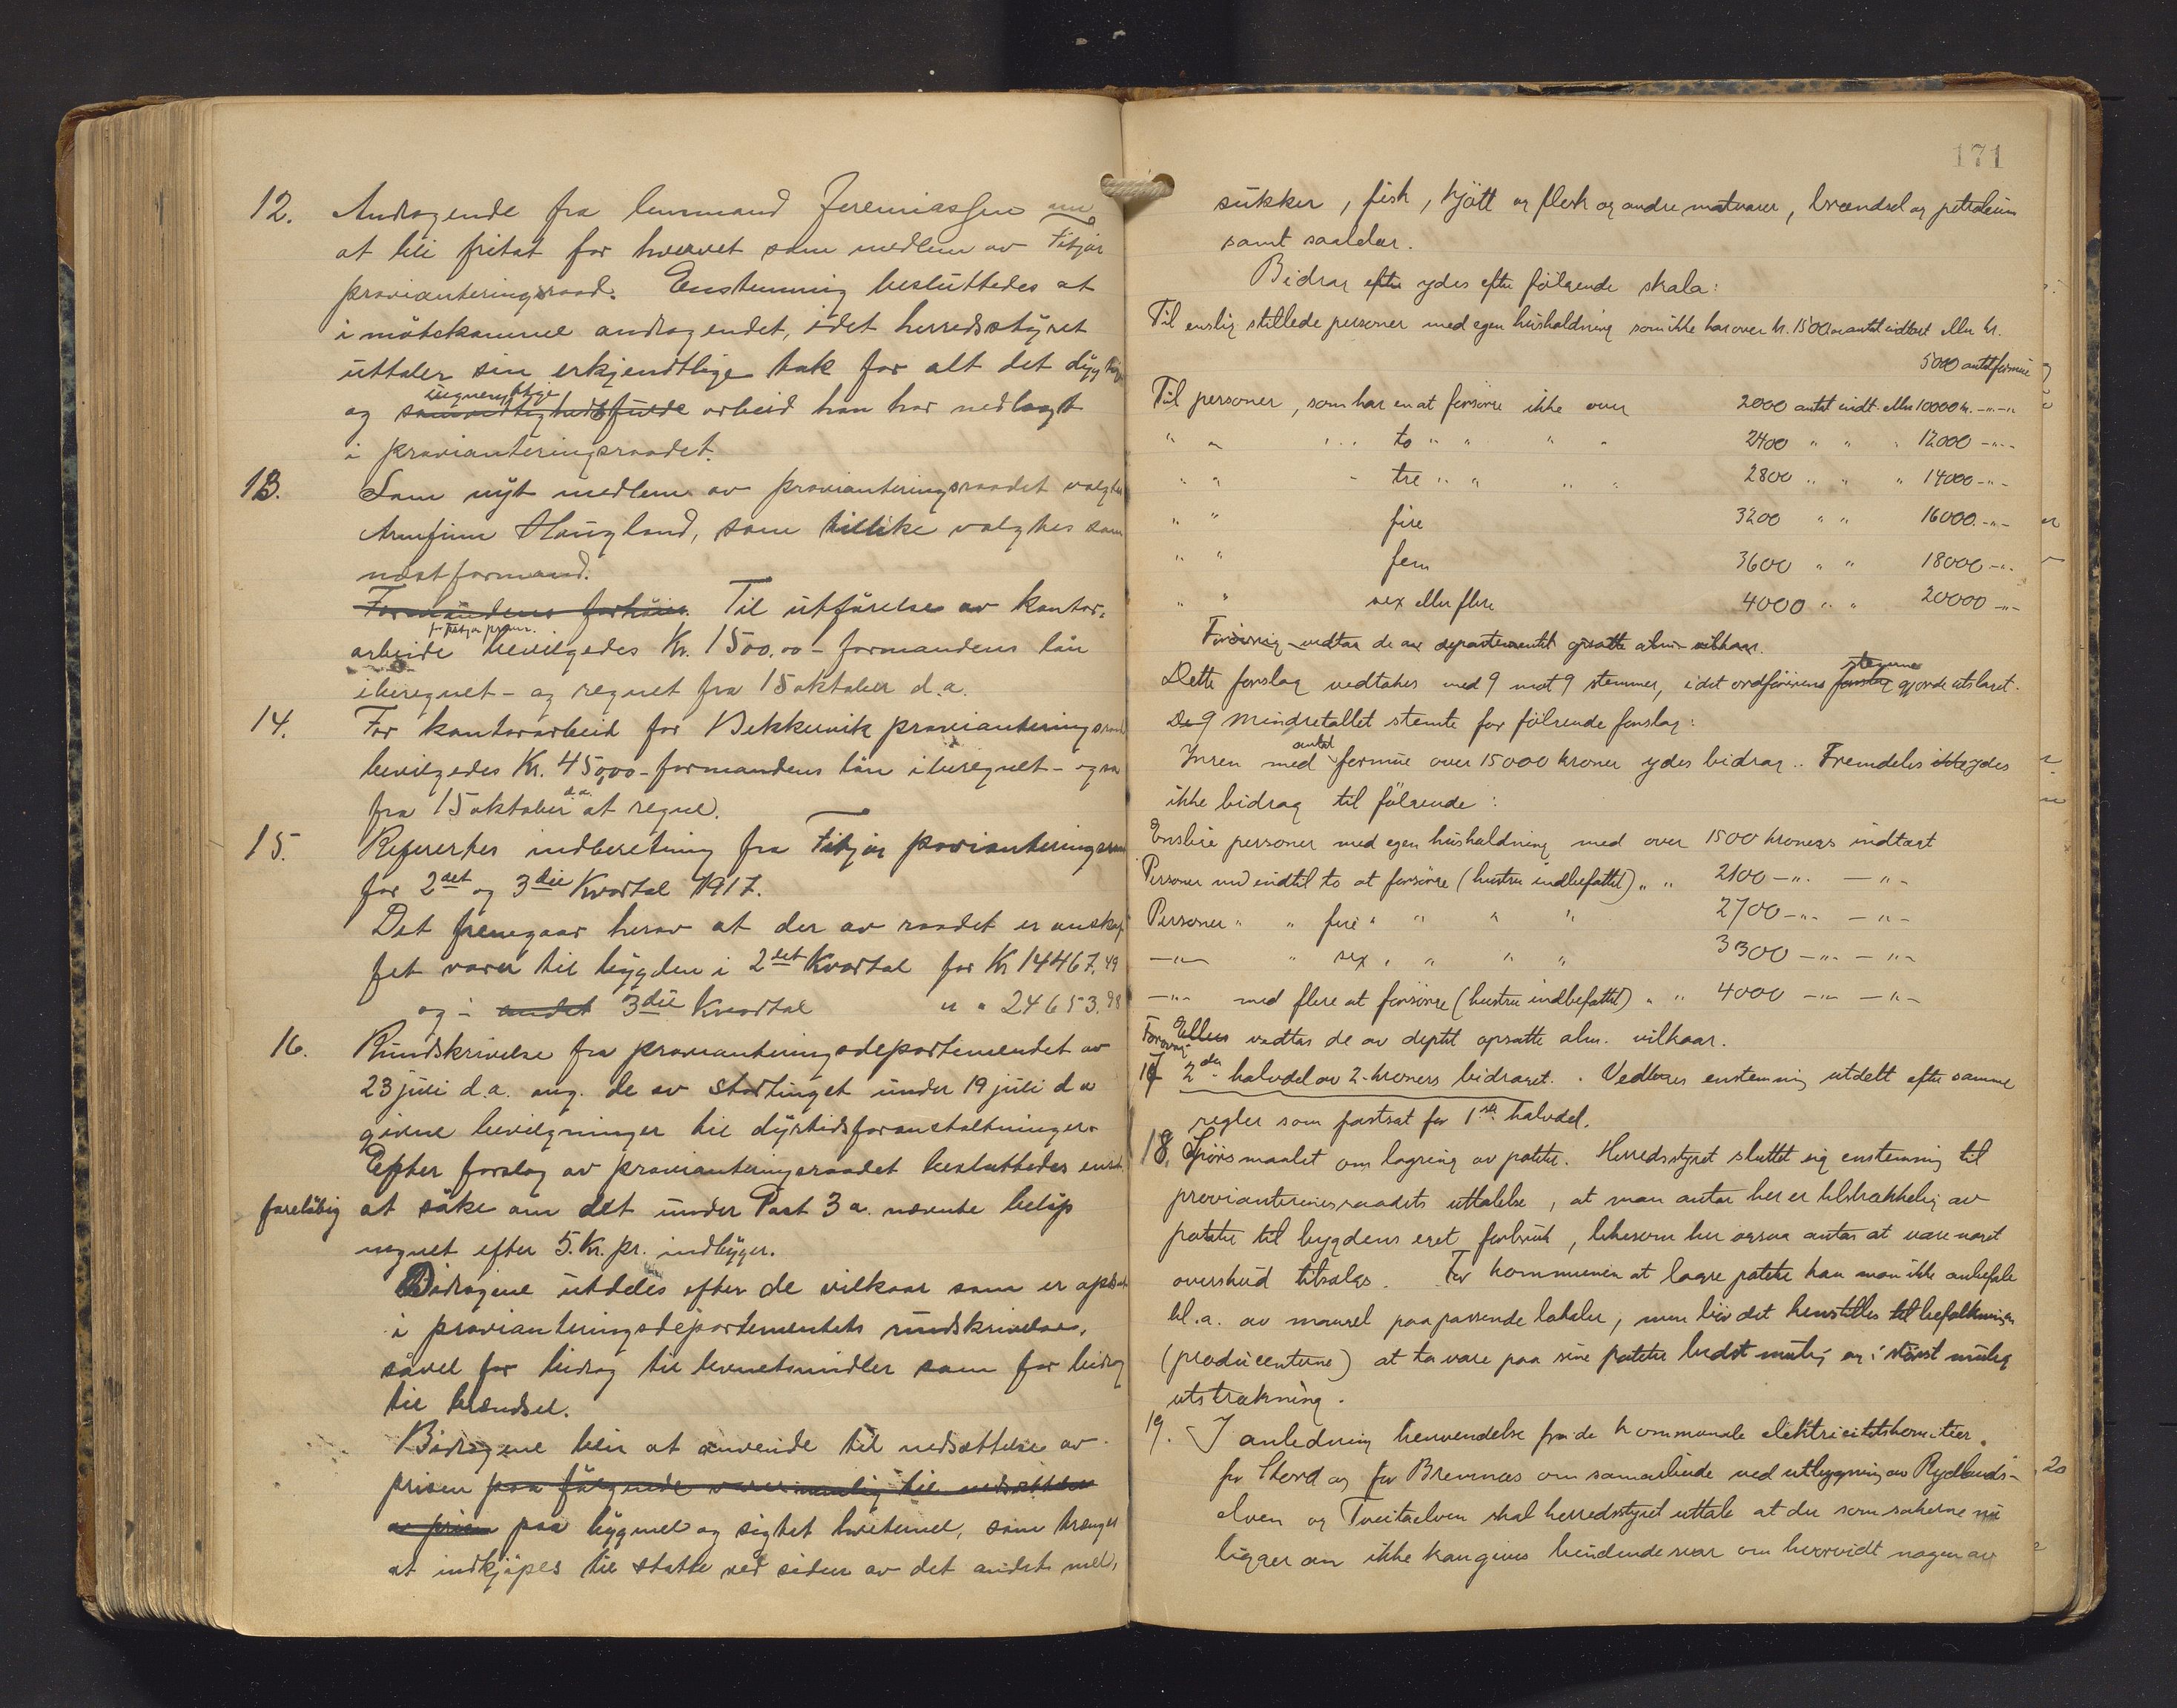 12. Andragende fra lensmand Jeremiassen om
at bli fritat for hvervet som medlem av Fitjar
provianteringsraad. Enstemmig besluttedes at
imötekomme andragendet, idet herredsstyret
uttaler sin erkjendtlige tak for alt det dygtige
uegennyttige
og samvittighedsfulde arbeid han har nedlagt
i provianteringsraadet.
13. Som nyt medlem av provianteringsraadet valgtes
Arnfinn Haugland, som tillike valgtes som
næstformand.
Formandens forhöies. Til utförelse av kontor-
for Fitjar prov.
arbeide bevilgedes Kr. 1500,00 - formandens lön
iberegnet - og regnet fra 15 oktober d.a.
14. For kontorarbeid for Bekkervik provianteringsraad
bevilgedes Kr. 450,00 - formandens lön iberegnet - ogsaa
fra 15 oktober d.a. at regne.
15. Refererites indberetning fra Fitjar provianteringsraad
for 2det og 3die Kvartal 1917.
Det fremgaar herav at der av raadet er anskaf
fet varer til bygden i 2det Kvartal for Kr 14467,49
og i andet 3die Kvartal " " 24653.98
16. Rundskrivelse fra provianteringsdepartementet av
23 juli d.a. ang. de av stortinget under 19 juli d a
givne bevilgninger til dyrtidsforanstaltninger.
Efter forslag av provianteringsraadet besluttedes enst.
foreløbig at söke om det under Post 3 a. nævnte belöp
regnet efter 5. Kr. pr. indbygger.
Bidragene utdeles efter de vilkaar som er opsat
i provianteringsdepartementets rundskrivelse,
såvel for bidrag til levnetsmidler som for bidrag
til brændsel.
Bidragene blir at anvende til nedsættelse av
prisen paa fölgende varer nemlig til nedsættelse
av prisen paa bygmel og sigtet hvetemel, som trænges
at indkjöpes til støtte ved siden av det andet mel,
171
sukker, fisk, kjött og flesk og andre matvarer, brændsel og petroleum
samt saalelær.
Bidrag efter ydes efter fölgende skala:
Til enslig stillede personer med egen husholdning som ikke har over kr. 1500 antat indtægt eller kr.
5000 antat formue
Til personer, som har en at forsörge ikke over 2000 antat indt. eller 10000 kr. -"-"
" " " " to " " " " 2400 " " " 12000 -"-
" " " tre " " " " 2800 " " " 14000 -"-
" " fire 3200 " " 16000 -"-
" " fem 3600 " " 18000 -"-
" " sex eller flere 4000 " " 20000 -"-
Forövrig vedtas de av departementet opsatte alm. vilkaar.
Dette forslag vedtokes med 9 mot 9 stemmer, idet ordförerens forslag stemme gjorde utslaget.
De 9 Mindretallet stemte for fölgende forslag:
antat
Ingen med formue over 15000 kroner ydes bidrag. Fremdeles ikke ydes
ikke bidrag til fölgende:
Enslige personer med egen husholdning med over 1500 kroners indtægt
Personer med indtil to at forsörge (hustru indbefattet) " " 2100 -"- -"-
Personer " " fire " " " " 2700 -"- -"-
-"- " sex " " " " 3300 -"- -"-
-"- med flere at forsörge (hustru indbefattet) " " 4000 -"- -"-
Forövrig Ellers vedtas de av deptet opsatte alm. vilkaar.
17 2den halvdel av 2-kroners bidraget. Vedtoges enstemmig utdelt efter samme
regler som fastsat for 1ste halvdel.
18. Spörsmaalet om lagring av poteter. Herredsstyret sluttet sig enstemmig til
provianteringsraadets uttalelse, at man antar her er tilstrækkelig av
poteter til bygdens eget forbruk, likesom her ogsaa antas at være noget
overskud tilsalgs. For kommunen at lagre poteter kan man ikke anbefale
bl.a. av mangel paa passende lokaler, men bör det henstilles til befolkningen
(producenterne) at ta vare paa sine poteter bedst mulig og i störst mulig
utstrækning.
19. I anledning henvendelse fra de kommunale elektricitetskomiteer
for Stord og for Bremnes om samarbeide ved utbygning av Rydlands-
elven og Tveitaelven skal herredsstyret uttale at der som sakerne nu
ligger an ikke kan gives bindende svar om hvorvidt nogen av